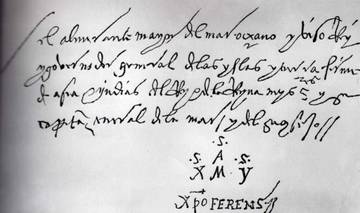 el almirante mayor del mar oçeano y viso Rey
y governador general de las yslas y tierra firme
de asia e yndias del Rey e de la Reyna mys S res y su
capitan general de la mar y del consejo
.S.
.S. A .S.
X M y
Xpo FERENS //